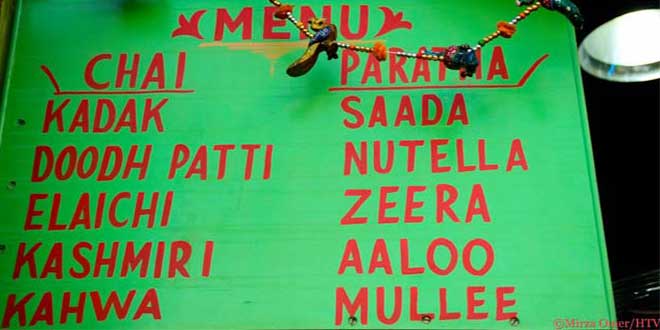 MENU
CHAI
KADAK
DOODH PATTI
ELAICHI
KASHMIRI
KAHWA
PARATHA
SAADA
NUTELLA
ZEERA
AALOO
MULLEE
©Mirza Omer/HTV